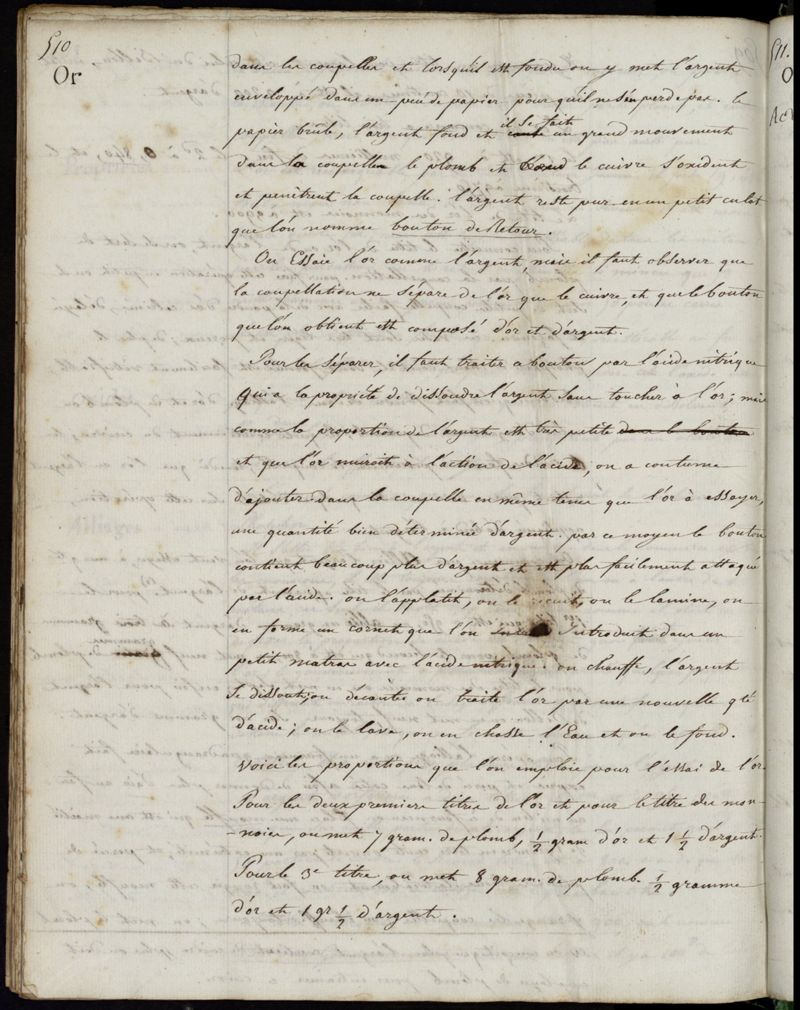 510
Or
dans les coupelles et lorsqu'il est fondu on y met l'argent
enveloppé dans un peu de papier pour qu'il ne s'en perde pas. le
papier brûle, l'argent fond et il se fait un grand mouvement
dans la coupelle le plomb et le cuivre s'oxident
et penètrent la coupelle. l'argent reste pur en un petit culot
que l'on nomme bouton de Retour.
On Essaie l'or comme l'argent, mais il faut observer que
la coupellation ne sépare de l'or que le cuivre, et que le bouton
que l'on obtient est composé d'or et d'argent.
Pour les séparer, il faut traiter ce bouton par l'acide nitrique
qui a la propriété de dissoudre l'argent sans toucher à l'or; mais
comme la proportion de l'argent est très petite dans le bouton
et que l'or nuiroit à l'action de l'acide, on a coutume
d'ajouter dans la coupelle en même tems que l'or à essayer,
une quantité bien déterminée d'argent, par ce moyen le bouton
contient beaucoup plus d'argent et est plus facilement attaqué
par l'acide. on l'applatit, on le recuit, on le lamine, on
en forme un cornet que l'on introduit dans un
petit matras avec l'acide nitrique. on chauffe, l'argent
se dissout; on décante, on traite l'or par une nouvelle qté
d'acide; on le lave, on en chasse l'Eau et on le fond.
Voici les proportions que l'on emploie pour l'essai de l'or.
Pour les deux premiers titres de l'or et pour le titre des mon-
-noies, on met 7 gram. de plomb, 1/2 gram d'or et 1 1/2 d'argent.
Pour le 3e titre, on met 8 gram. de plomb. 1/2 gramme
d'or et 1 gr 1/2 d'argent.
511.
O